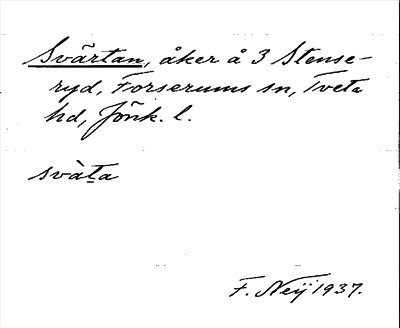 Svärtan, åker å 3 Stense-
ryd, Forserums sn, Tveta
hd, Jönk. l.
svàṯa
F. Neij 1937.